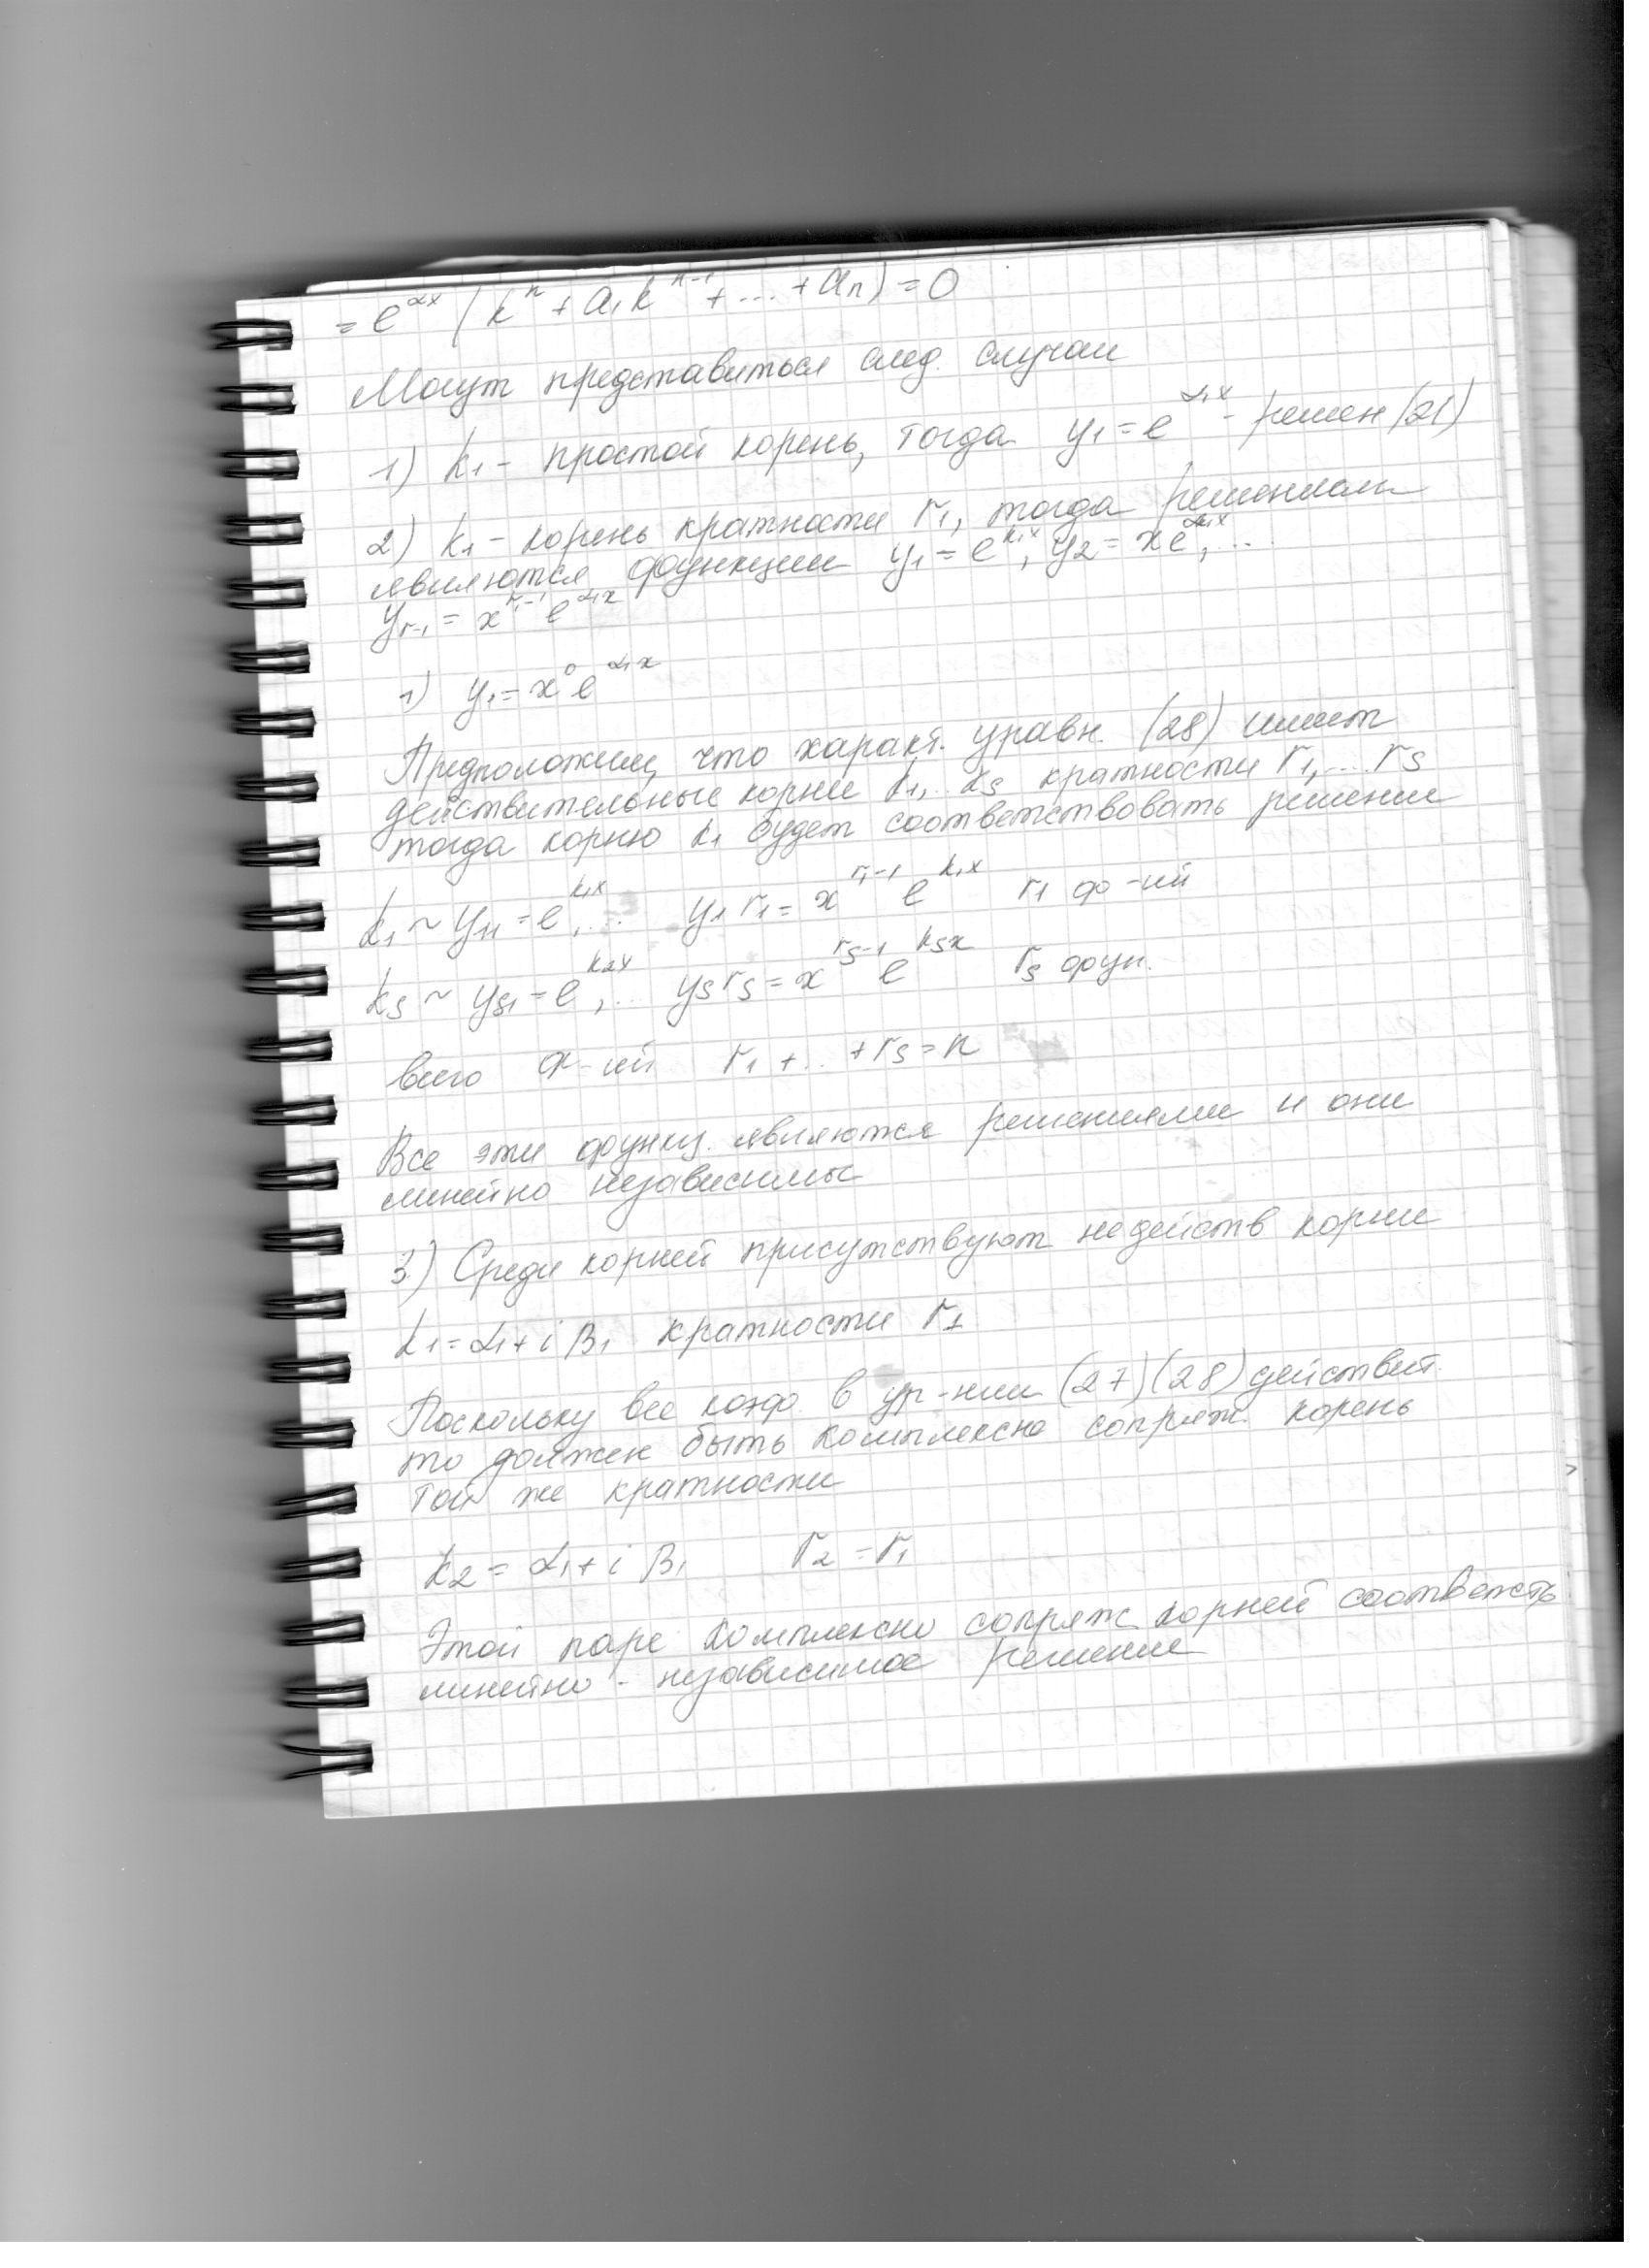 = e^αx (k^n + a₁k^n-1 + ... + aₙ) = 0
Могут представиться след. случаи
1) k₁ - простой корень, тогда y₁ = e^α₁x - решен (21)
2) k₁ - корень кратности r₁, тогда решениями
являются функции y₁ = e^k₁x, y₂ = xe^α₁x, ...
y_r-1 = x^r₁-1 e^α₁x
1) y₁ = x⁰e^α₁x
Предположим, что характ. уравн. (28) имеет
действительные корни k₁,.. k_s кратности r₁,... r_s
тогда корню k₁ будет соответствовать решение
k₁ ~ y₁₁ = e^k₁x, ... y₁r₁ = x^r₁-1 e^k₁x r₁ ф-ий
k_s ~ y_s1 = e^k₂x, ... y_s r_s = x^r_s-1 e^k_sx r_s фун.
всего ф-ий r₁ + .. + r_s = n
Все эти функц. являются решениями и они
линейно независимы
3) Среди корней присутствуют недейств корни
k₁ = α₁ + i β₁ кратности r₁
Поскольку все коэф. в ур-нии (27) (28) действит.
то должен быть комплексно сопряж. корень
той же кратности
k₂ = α₁ + i β₁ r₂ = r₁
Этой паре комплексно сопряж корней соответств
линейно - независимое решение